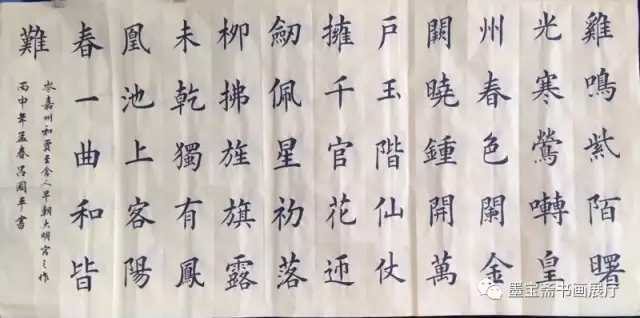 雞鳴紫陌曙
光寒鶯囀皇
州春色闌金
闕曉鍾開萬
戶玉階仙仗
擁千官花迎
劒佩星初落
柳拂旌旗露
未乾獨有鳳
凰池上客陽
春一曲和皆
難
岑嘉州和賈至舍人早朝大明宮之作
丙申年孟春呂國平書
墨宝斋书画展厅